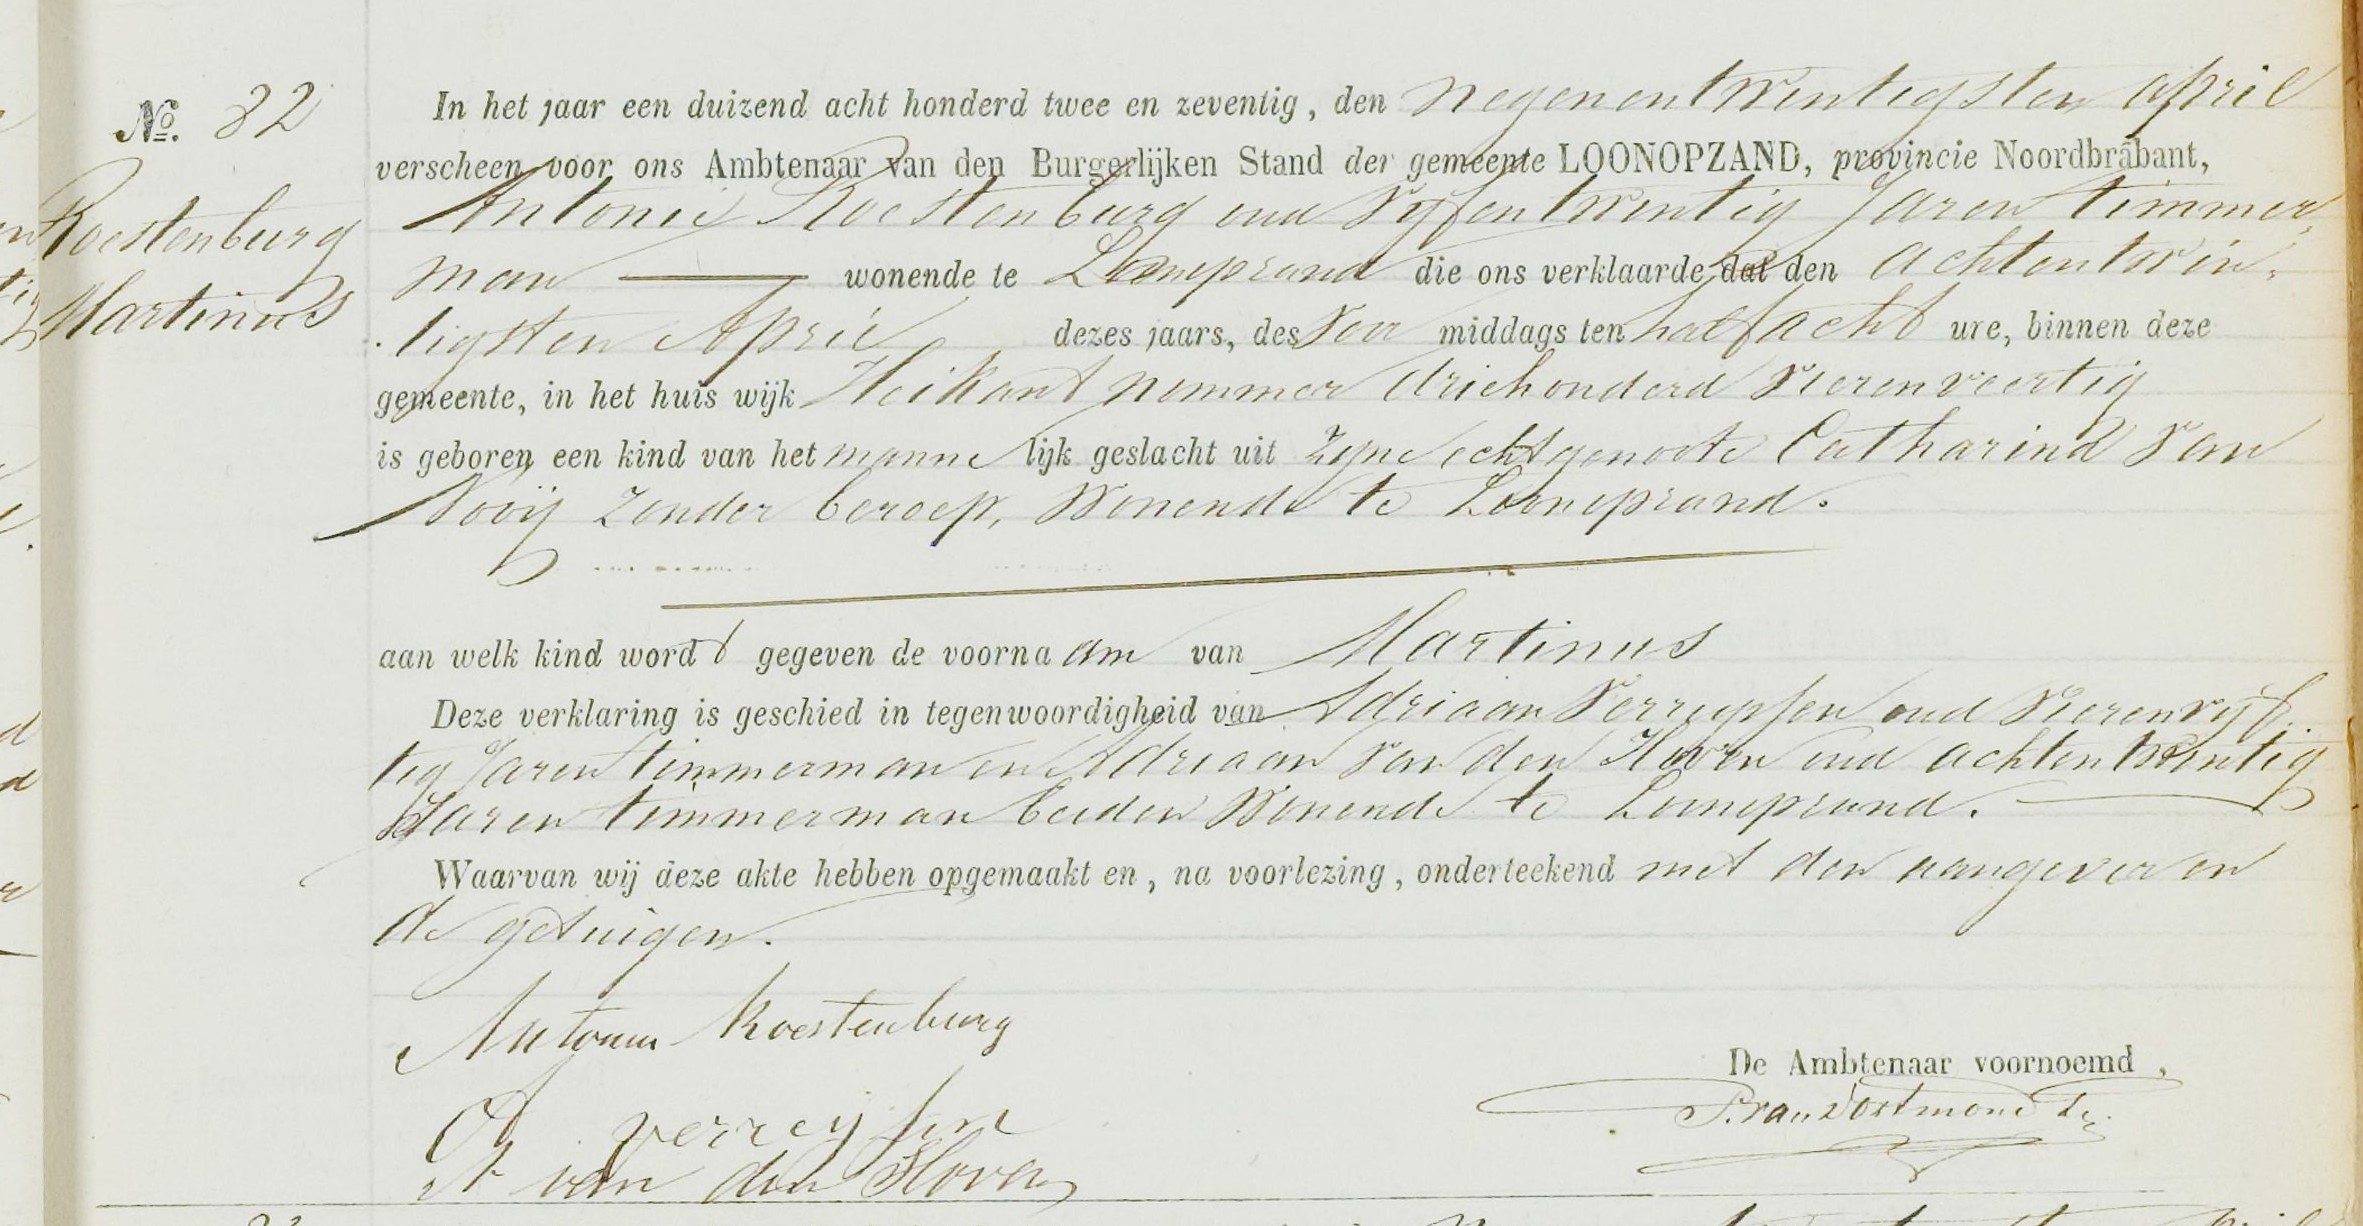 No. 82
Roestenburg
Martinus
In het jaar een duizend acht honderd twee en zeventig, den negenentwintigsten april
verscheen voor ons Ambtenaar van den Burgerlijken Stand der gemeente LOONOPZAND, provincie Noordbrabant,
Antonie Roestenburg oud vyfentwintig Jaren timmer
man wonende te Loonopzand die ons verklaarde dat den achtentwin
tigsten April dezes jaars, des voor middags ten half acht ure, binnen deze
gemeente, in het huis wijk Heikant nommer driehonderd vierenveertig
is geboren een kind van het manne lijk geslacht uit zyne echtgenoote Catharina van
Nooij zonder beroep, wonende te Loonopzand.
aan welk kind word t gegeven de voorna am van Martinus
Deze verklaring is geschied in tegenwoordigheid van Adriaan oud vierenvyf
tig Jaren timmerman en Adriaan van den Hoven oud achtentwintig
Jaren timmerman beiden wonende te Loonopzand.
Waarvan wij deze akte hebben opgemaakt en, na voorlezing, onderteekend met den aangever en
de getuigen.
Antonie Roestenburg
De Ambtenaar voornoemd,
A verreijsen
P. van Dortmond
A van den Hoven